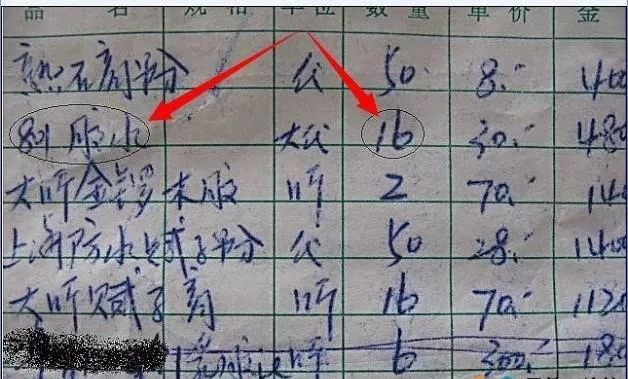 品 名 规 格 单 位 数 量 单 价 金
熟石膏粉 代 50 8.-  400
801胶水 大代 16 30.- 480
大听金锣木胶 听 2 70.- 14
上海防水腻子粉 代 50 28.- 1400
大听腻子膏 听 16 70.- 112
胶水 听 6 300.- 180